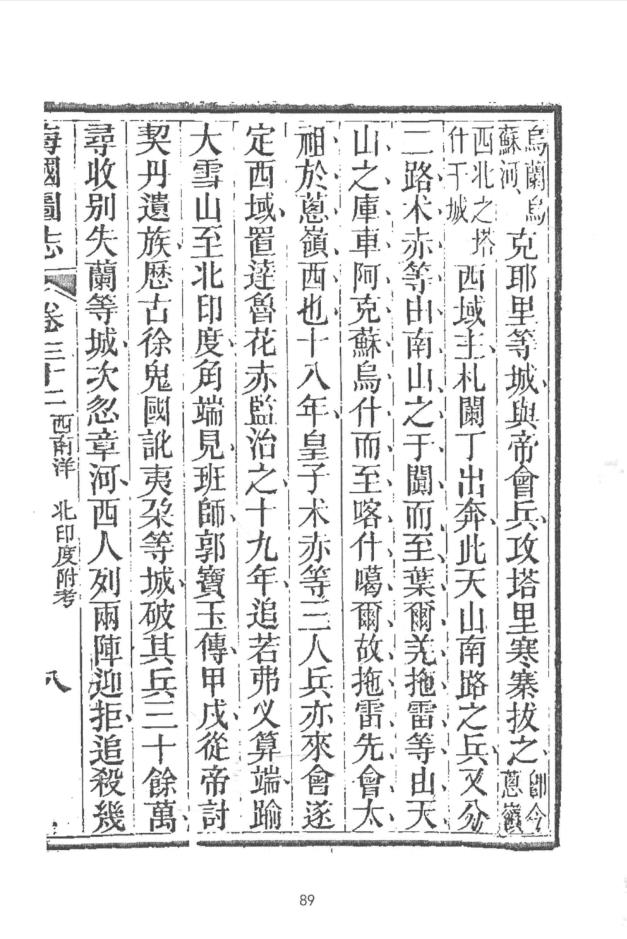 烏蘭烏蘇河克耶里等城與帝會兵攻塔里寒寨拔之卽今蔥嶺
西北之塔什干城西域主札闌丁出奔此天山南路之兵又分
二路术赤等由南山之于闐而至葉爾羌拖雷等由天
山之庫車阿克蘇烏什而至喀什噶爾故拖雷先會太
祖於蔥嶺西也十八年皇子术赤等三人兵亦來會遂
定西域置達魯花赤監治之十九年追若弗乂算端踰
大雪山至北印度角端見班師郭寶玉傳甲戌從帝討
契丹遺族歷古徐鬼國訛夷朶等城破其兵三十餘萬
尋收别失蘭等城次忽章河西人列兩陣迎拒追殺幾
海國圖志 卷三十二 西南洋 北印度附考 八
89